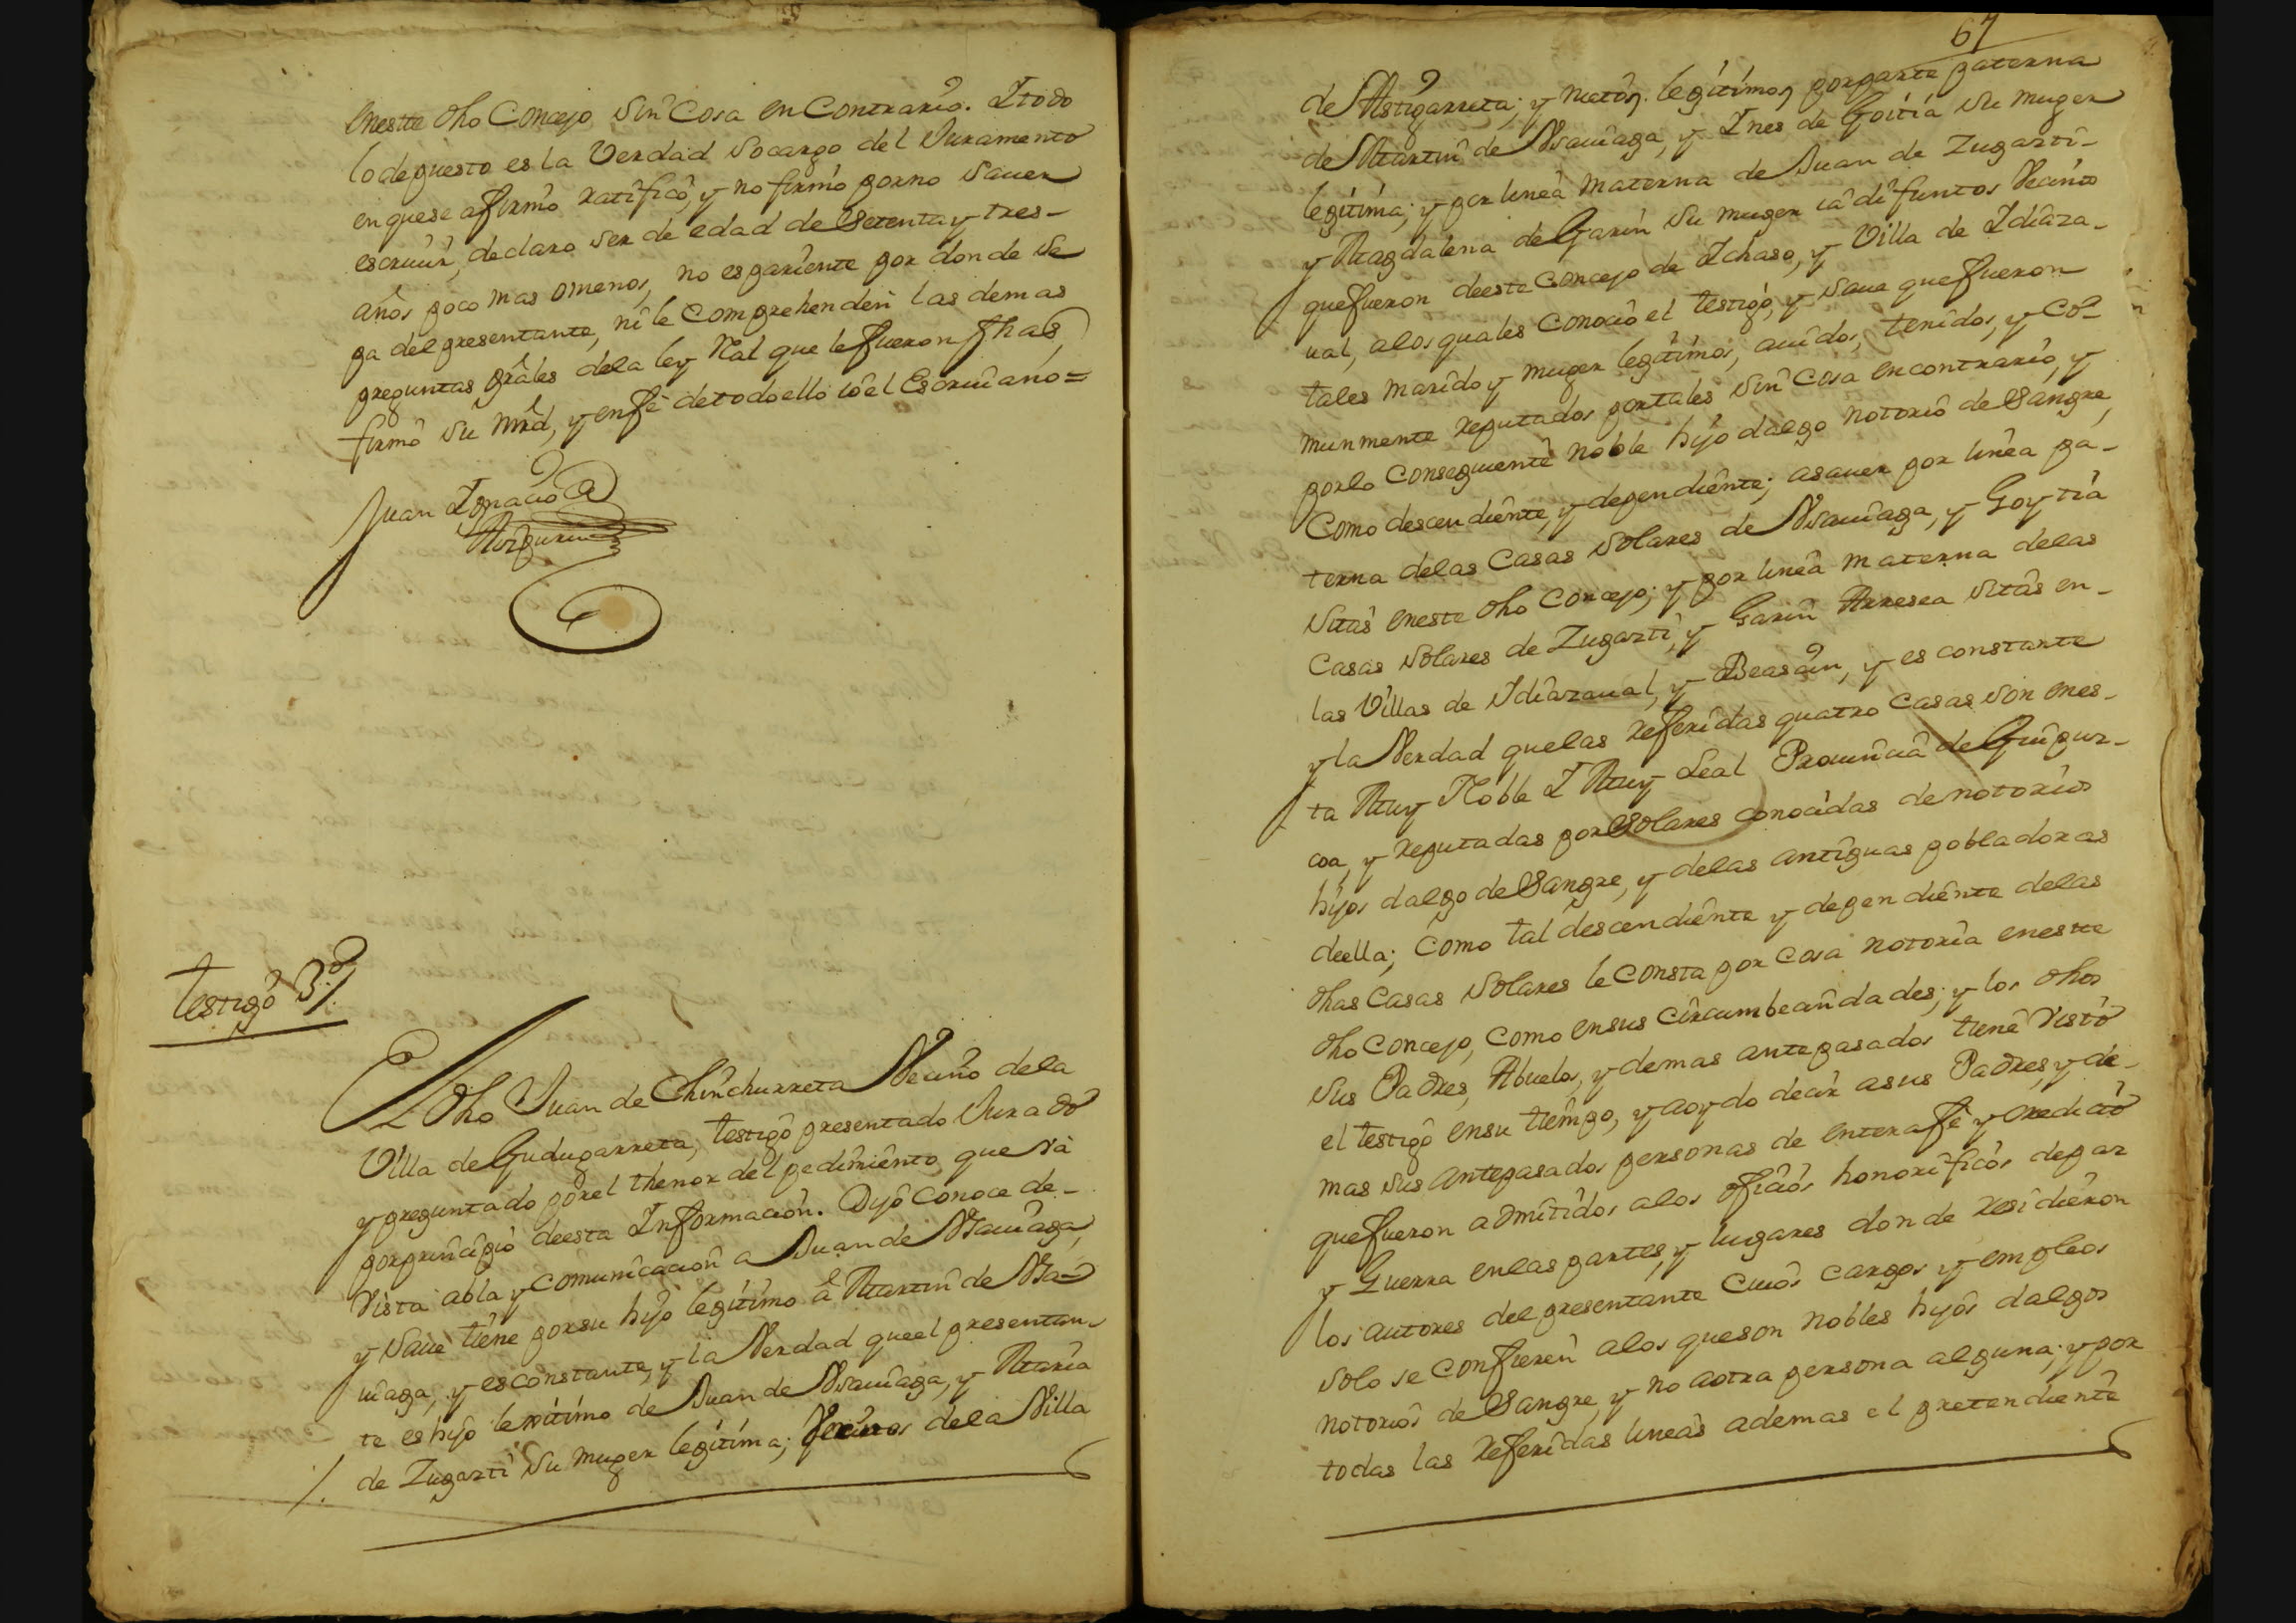 enestte dho Concejo sin Cosa en Contrario. I todo
lo depuesto es la Verdad socargo del Juramento
en que se afirmò ratificò, y no firmò por no sauer
escriuir, declaro ser de edad de setenta y tres-
años poco mas omenos, no es pariente por donde se
pa del presentante, ni le comprehenden las demas
preguntas grâles dela ley Râl que le fueron fhas,
firmò su mrd, y en fè detodo ello io el Escriuano=
Juan Ignacio
testigo 3º/.
El dho Juan de Chinchurreta Vecino dela
Villa de Gudugarreta, testigo presentado Jurado
y preguntado por el thenor del pedimiento, que vâ
por principio deesta Informacion. Dijo conoce de-
vista abla y comunicacion a Juan de Nsauiaga,
y saue tiene por su hijo legitimo â Martin de Nsa=
uiaga, y es constante, y la Verdad que el presentan-
te es hijo lexitimo de Juan de Nsauiaga, y Maria
/. de Zugarti su muger legitima; Vecinos dela Villa
67
de Astigarreta; y nietos legitimos por parte paterna
de Martin de Nsauiaga, y Ines de Goitia su muger
legitima; y por linea materna de Juan de Zugarti-
y Magdalena de Garin su muger iâ difuntos Vecinos
que fueron deeste Concejo de Ichaso, y Villa de Idiaza-
ual, alos quales conociò el testigo, y saue que fueron
tales marido y muger legitimos, auidos, tenidos, y co-
munmente reputados portales sin cosa en contrario, y
porlo conseguiente noble hijo dalgo notorio de Sangre,
Como descendiente, y dependiente; asauer por linea pa-
terna delas Casas solares de Nsauiaga, y Goytia
sitas eneste dho Concejo; y por linea materna delas
Casas solares de Zugarti, y Garin Arresea sitas en-
las Villas de Idiazaual, y Beasain, y es constante
y la Verdad que las referidas quatro casas son enes-
ta Muy Noble I Muy Leal Prouincia de Guipuz-
coa, y reputadas por Solares conocidas de notorios
hijos dalgo de Sangre, y delas antiguas pobladoras
deella; como tal descendiente y dependiente delas
dhas Casas solares le consta por cosa notoria enestte
dho Concejo, como en sus circumbeandades; y los dhos
sus Padres, Abuelos, y demas antepasados tiene visto
el testigo en su tiempo, y aoydo decir asus Padres, y de-
mas sus antepasados personas de entera fè y credicto
que fueron admitidos alos oficios honorificos depaz
y Guerra en las partes, y lugares donde residieron
los autores del presentante cuios cargos y empleos
solo se confieren alos que son nobles hijos dalgos
notorios de Sangre, y no aotra persona alguna; y por
todas las referidas lineas ademas el pretendiente